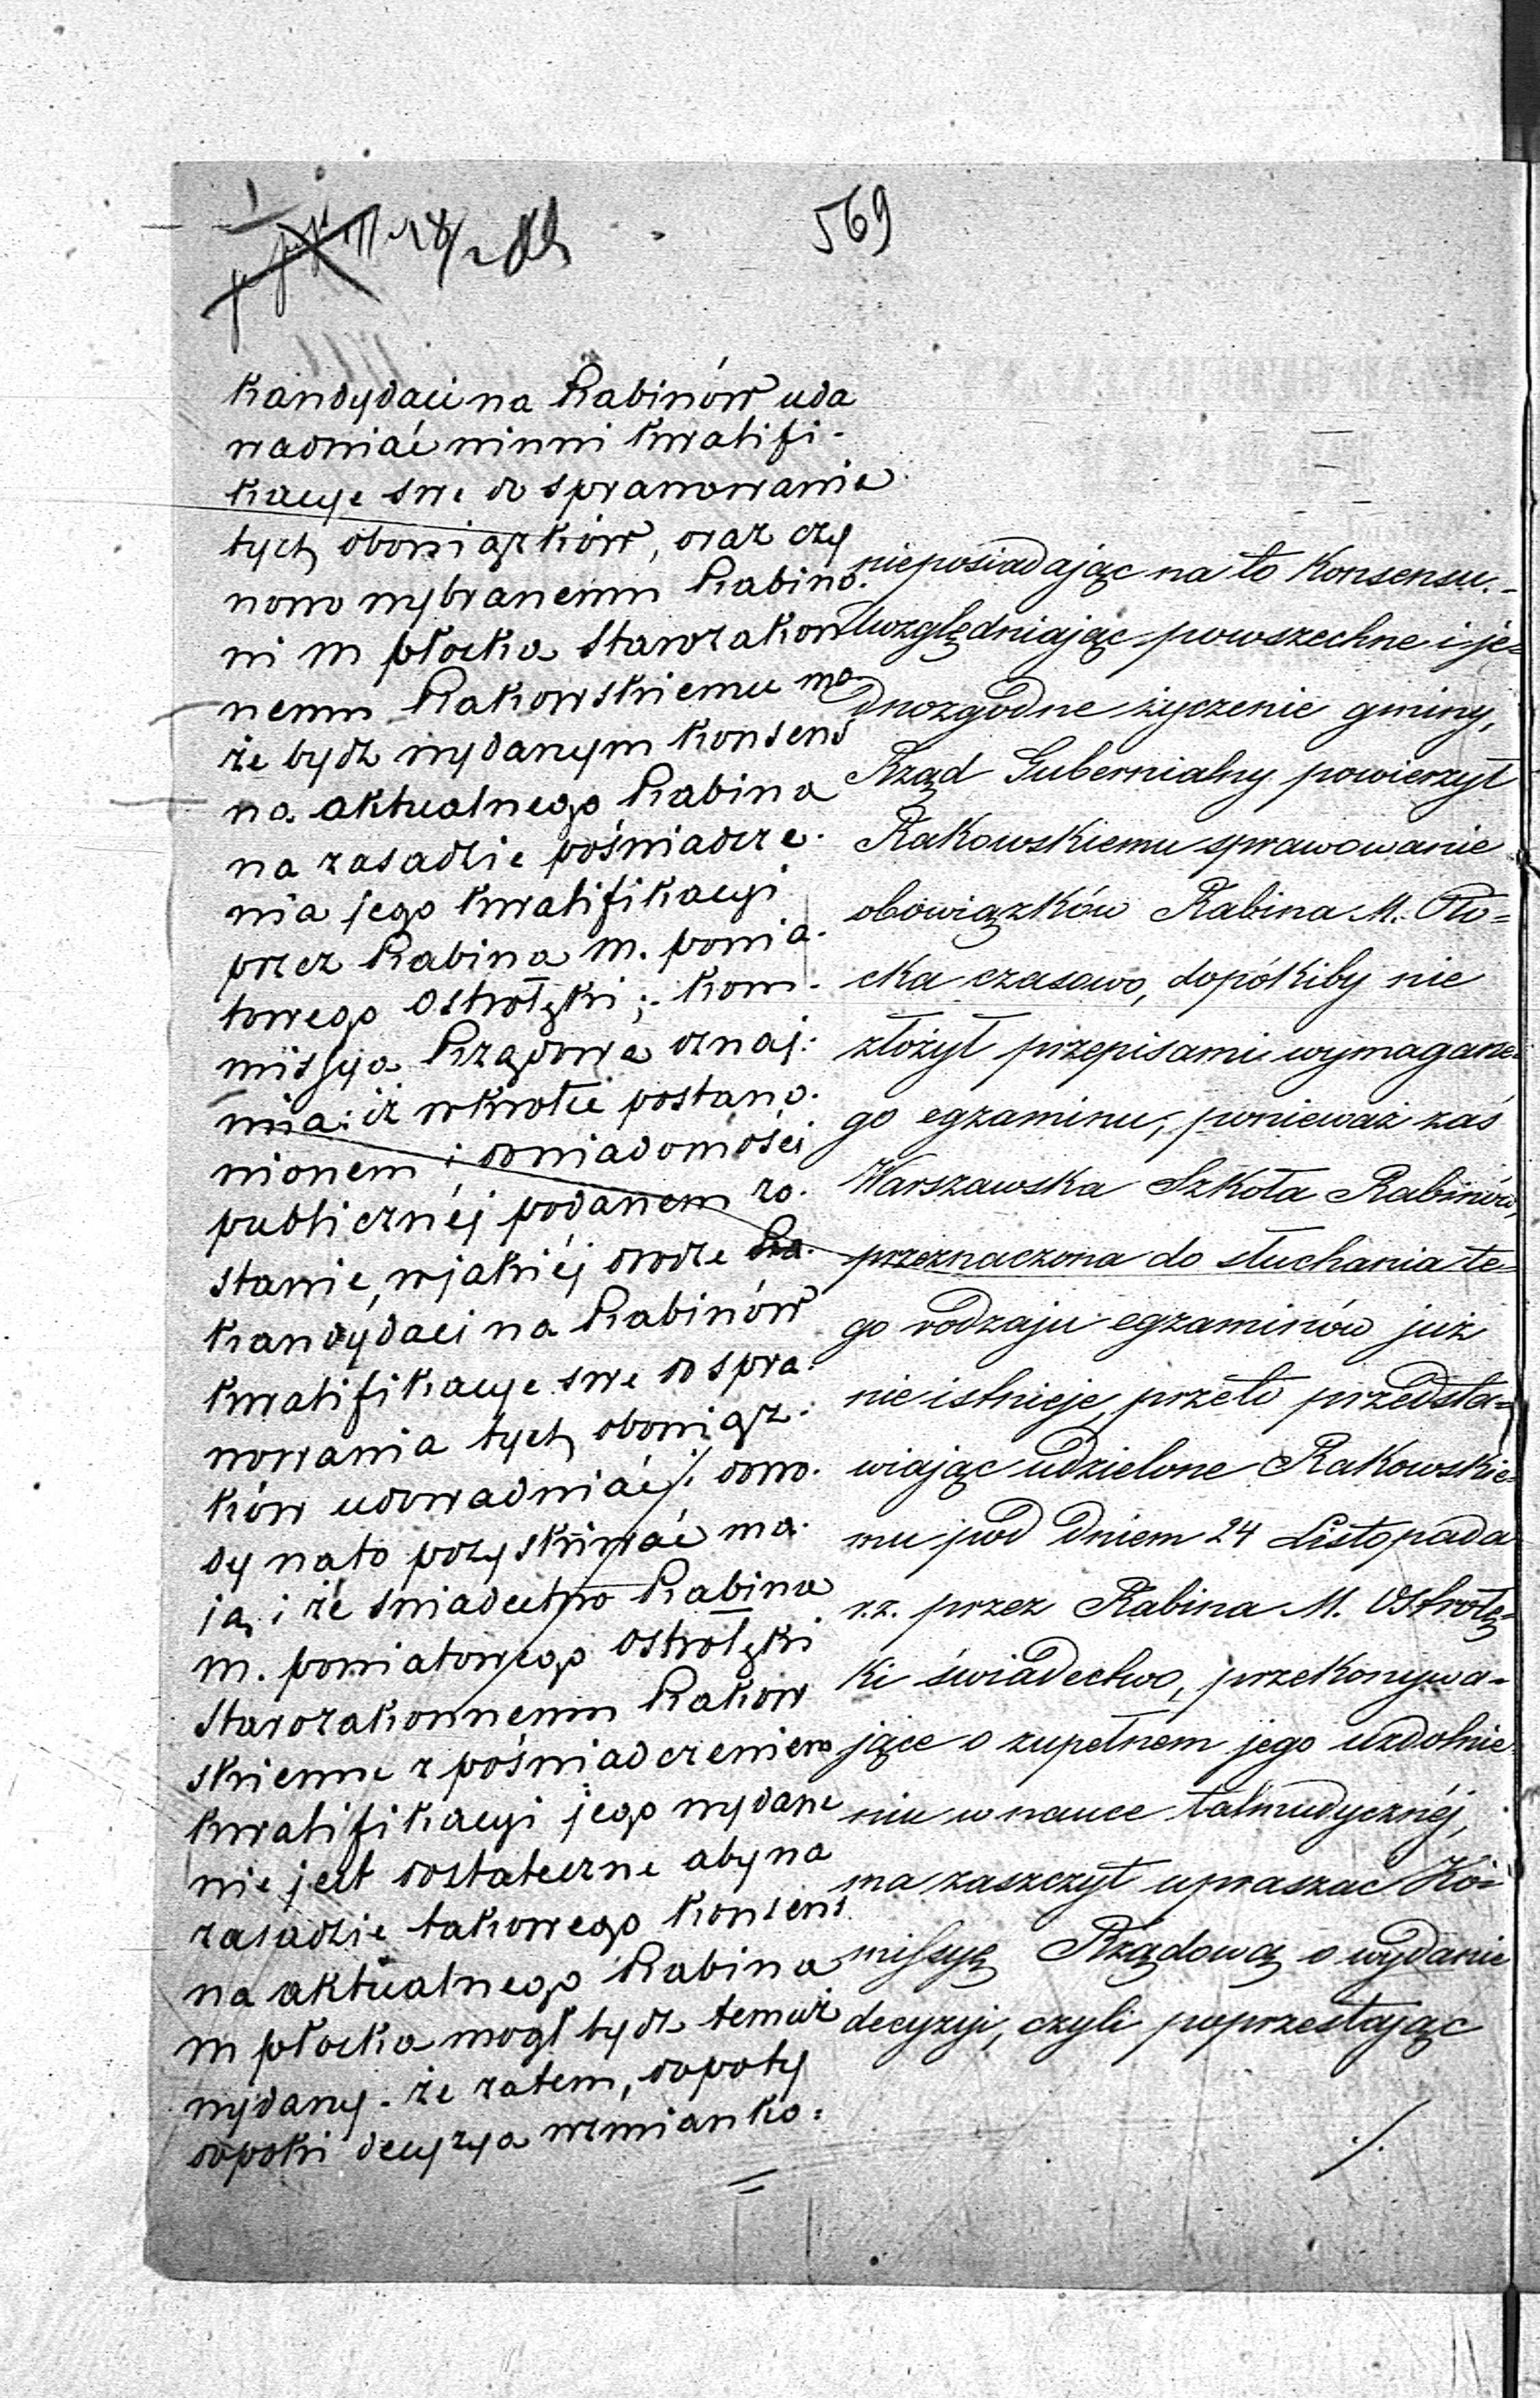 569
Kandydaci na Rabinów uda
wadniać winni kwalifi-
kacye swe do sprawowania
tych obowiązków, oraz czy
nowo wybranemu Rabino-
wi m płocka Starozakon
nemu Rakowskiemu mo
że bydź wydanym konsens
na aktualnego Rabina
na zasadzie poświadcze-
nia jego kwalifikacyi
przez Rabina m. powia-
towego Ostrołęki; - Kom-
missya Rządowa oznaj-
mia: iż wkrótce postano-
wionem i dowiadomości
publicznéj podanem zo-
stanie, wjakiéj drodze
Kandydaci na Rabinów
kwalifikacye swe do spra-
wowania tych obowiąz-
ków udowadniać i dowo-
dy nato pozyskiwać ma-
ją, i że świadectwo Rabina
m. powiatowego Ostrołęki
Starozakonnemu Rakow
skiemu z poświadczeniem
kwalifikacyi jego wydane
nie jest dostateczne aby na
zasadzie takowego konsens
na aktualnego Rabina
m płocka mogł bydź temuż
wydany. - że zatem, dopoty
dopoki decyzya wzmianko-
nieposiadając na to Konsensu. -
Uwzględniając powszechne i je=
dnozgodne życzenie gminy,
Rząd Gubernialny powierzył
Rakowskiemu sprawowanie
obowiązków Rabina M. Pło=
cka czasowo, dopókiby nie
złożył przepisami wymagane=
go egzaminu; ponieważ zaś
Warszawska Szkoła Rabinów,
przeznaczona do słuchania te=
go rodzaju egzaminów już
nie istnieje, przeto przedsta=
wiając udzielone Rakowskie=
mu pod dniem 24 Listopada
r.z. przez Rabina M. Ostrołę=
ki świadectwo, przekonywa=
jące o zupełnem jego uzdolnie
niu w nauce talmudycznéj,
ma zaszczyt upraszać Ko=
missyę Rządową o wydanie
decyzyi, czyli poprzestając
./.